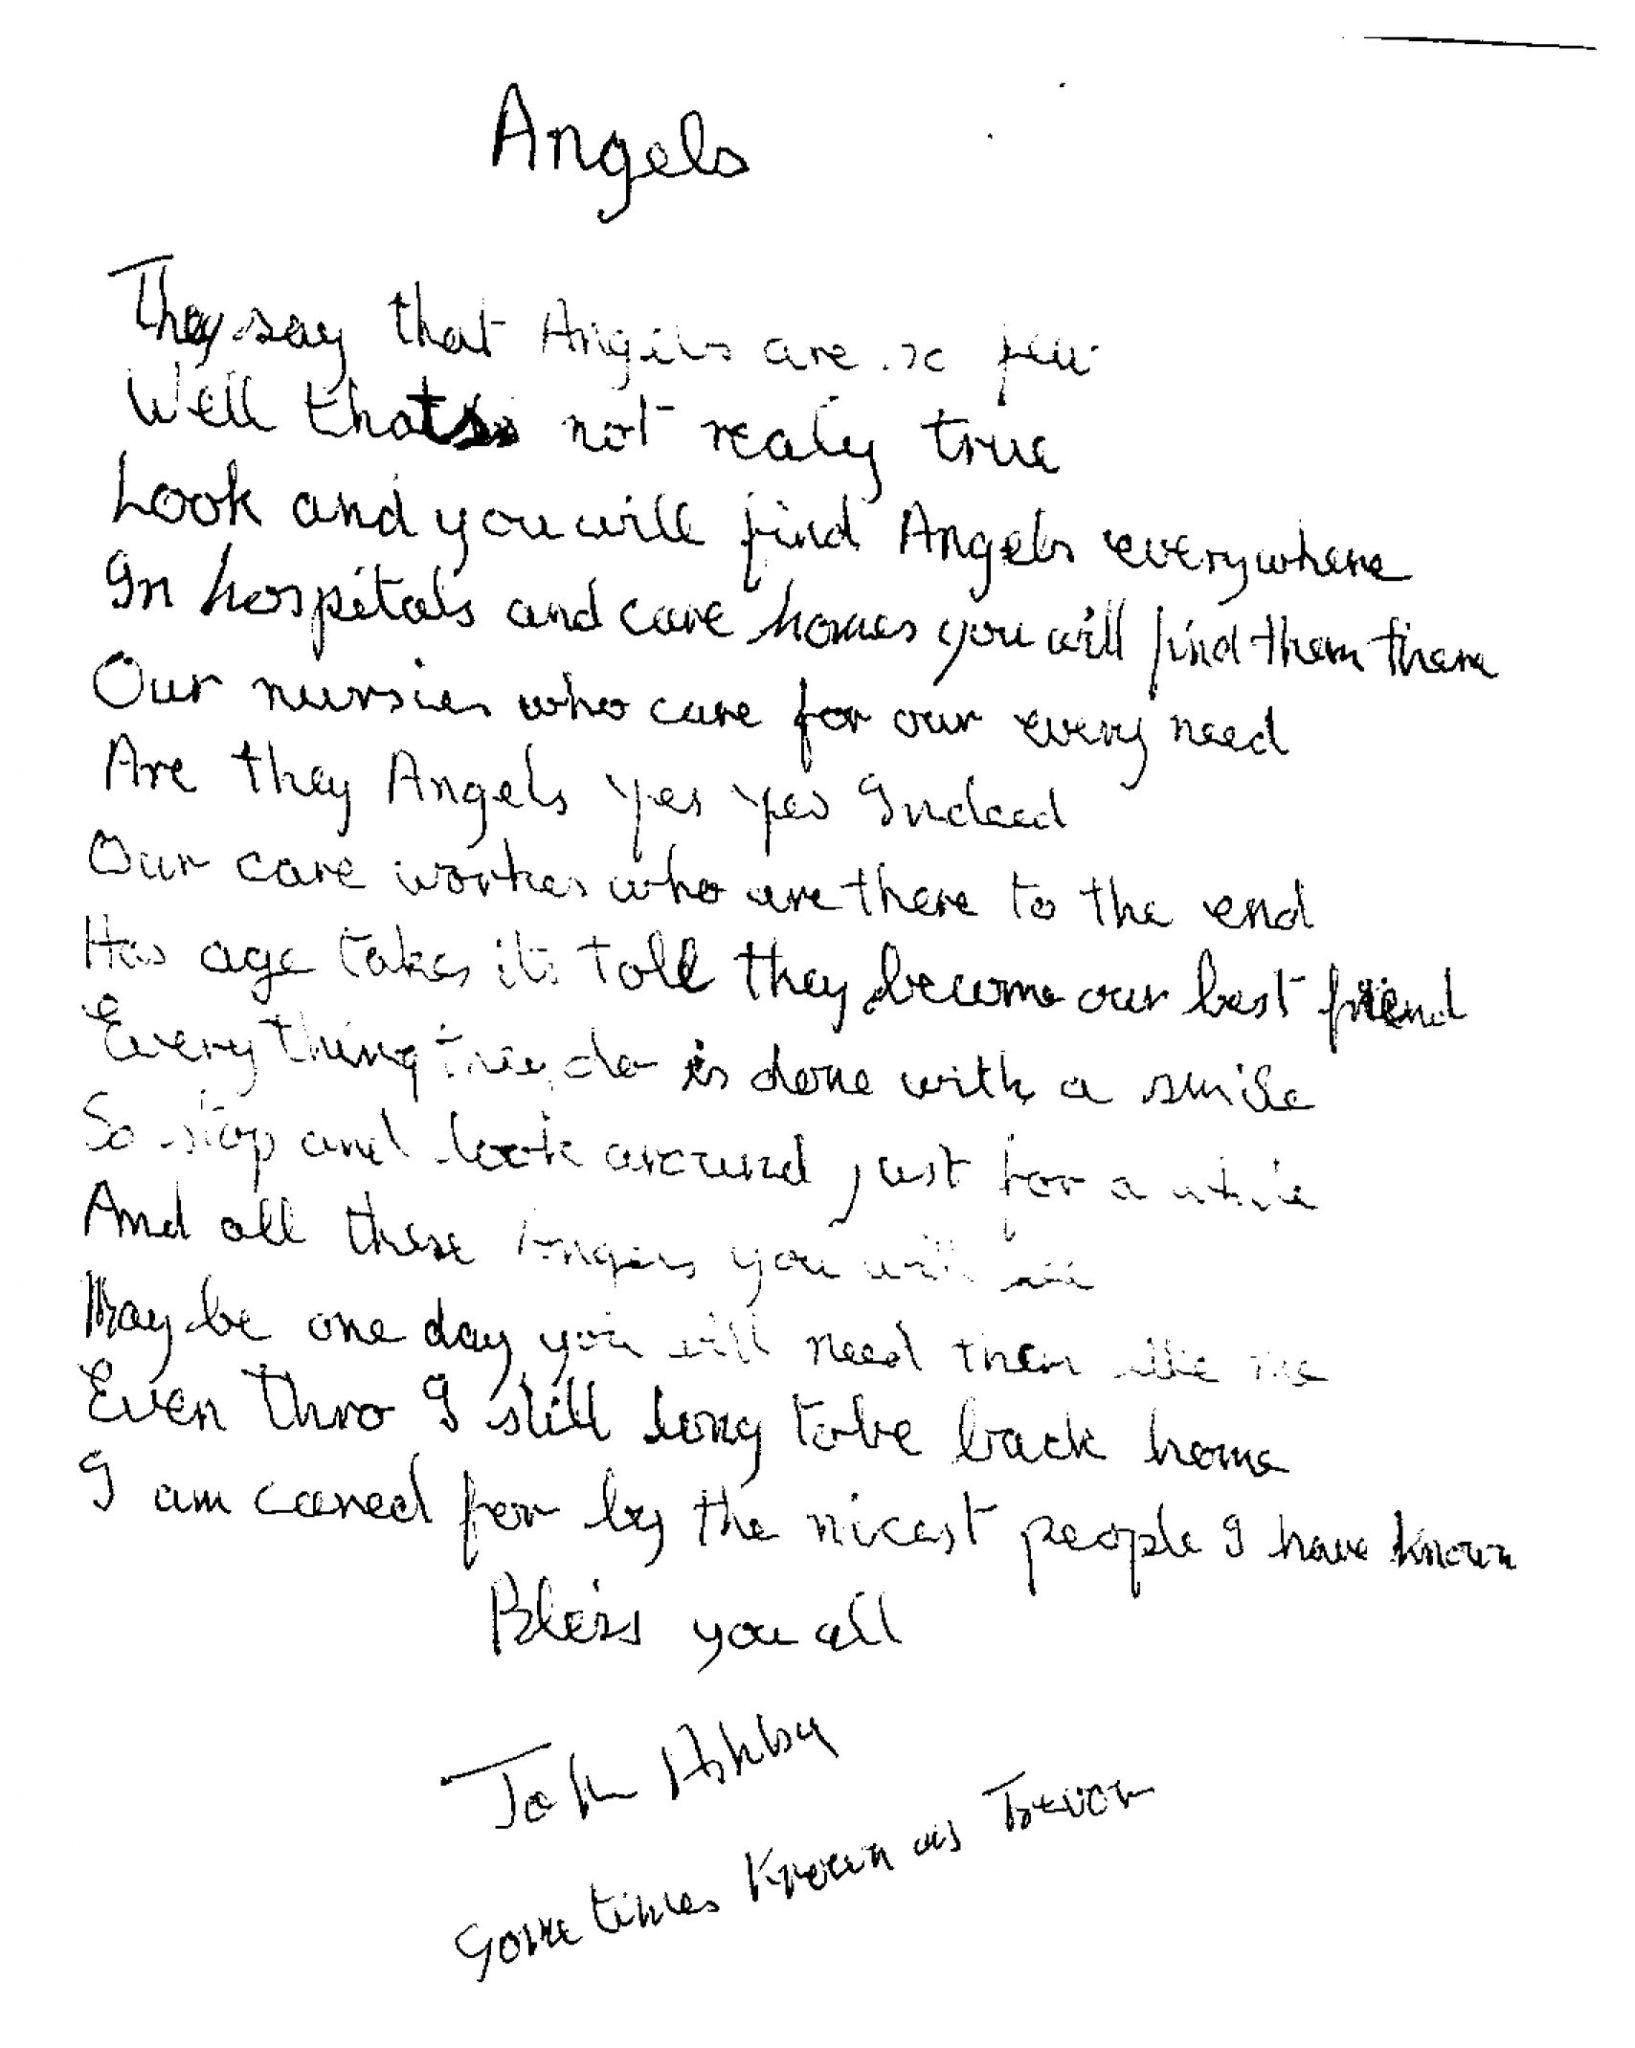 Angels
They say that Angels are so few
Well thats not realy true
Look and you will find Angels everywhere
In hospitals and care homes you will find them there
Our nursies who care for our every need
Are they Angels yes yes Indeed
Our care workes who are there to the end
Has age takes its toll they become our best friend
Every thing they do is done with a smile
So stop and look around just for a while
And all these Angels you will see
May be one day you will need them like me
Even thro I still long to be back home
I am cared for by the nicest people I have known
Bless you all
John Ashby
Sometimes Known as Trevor